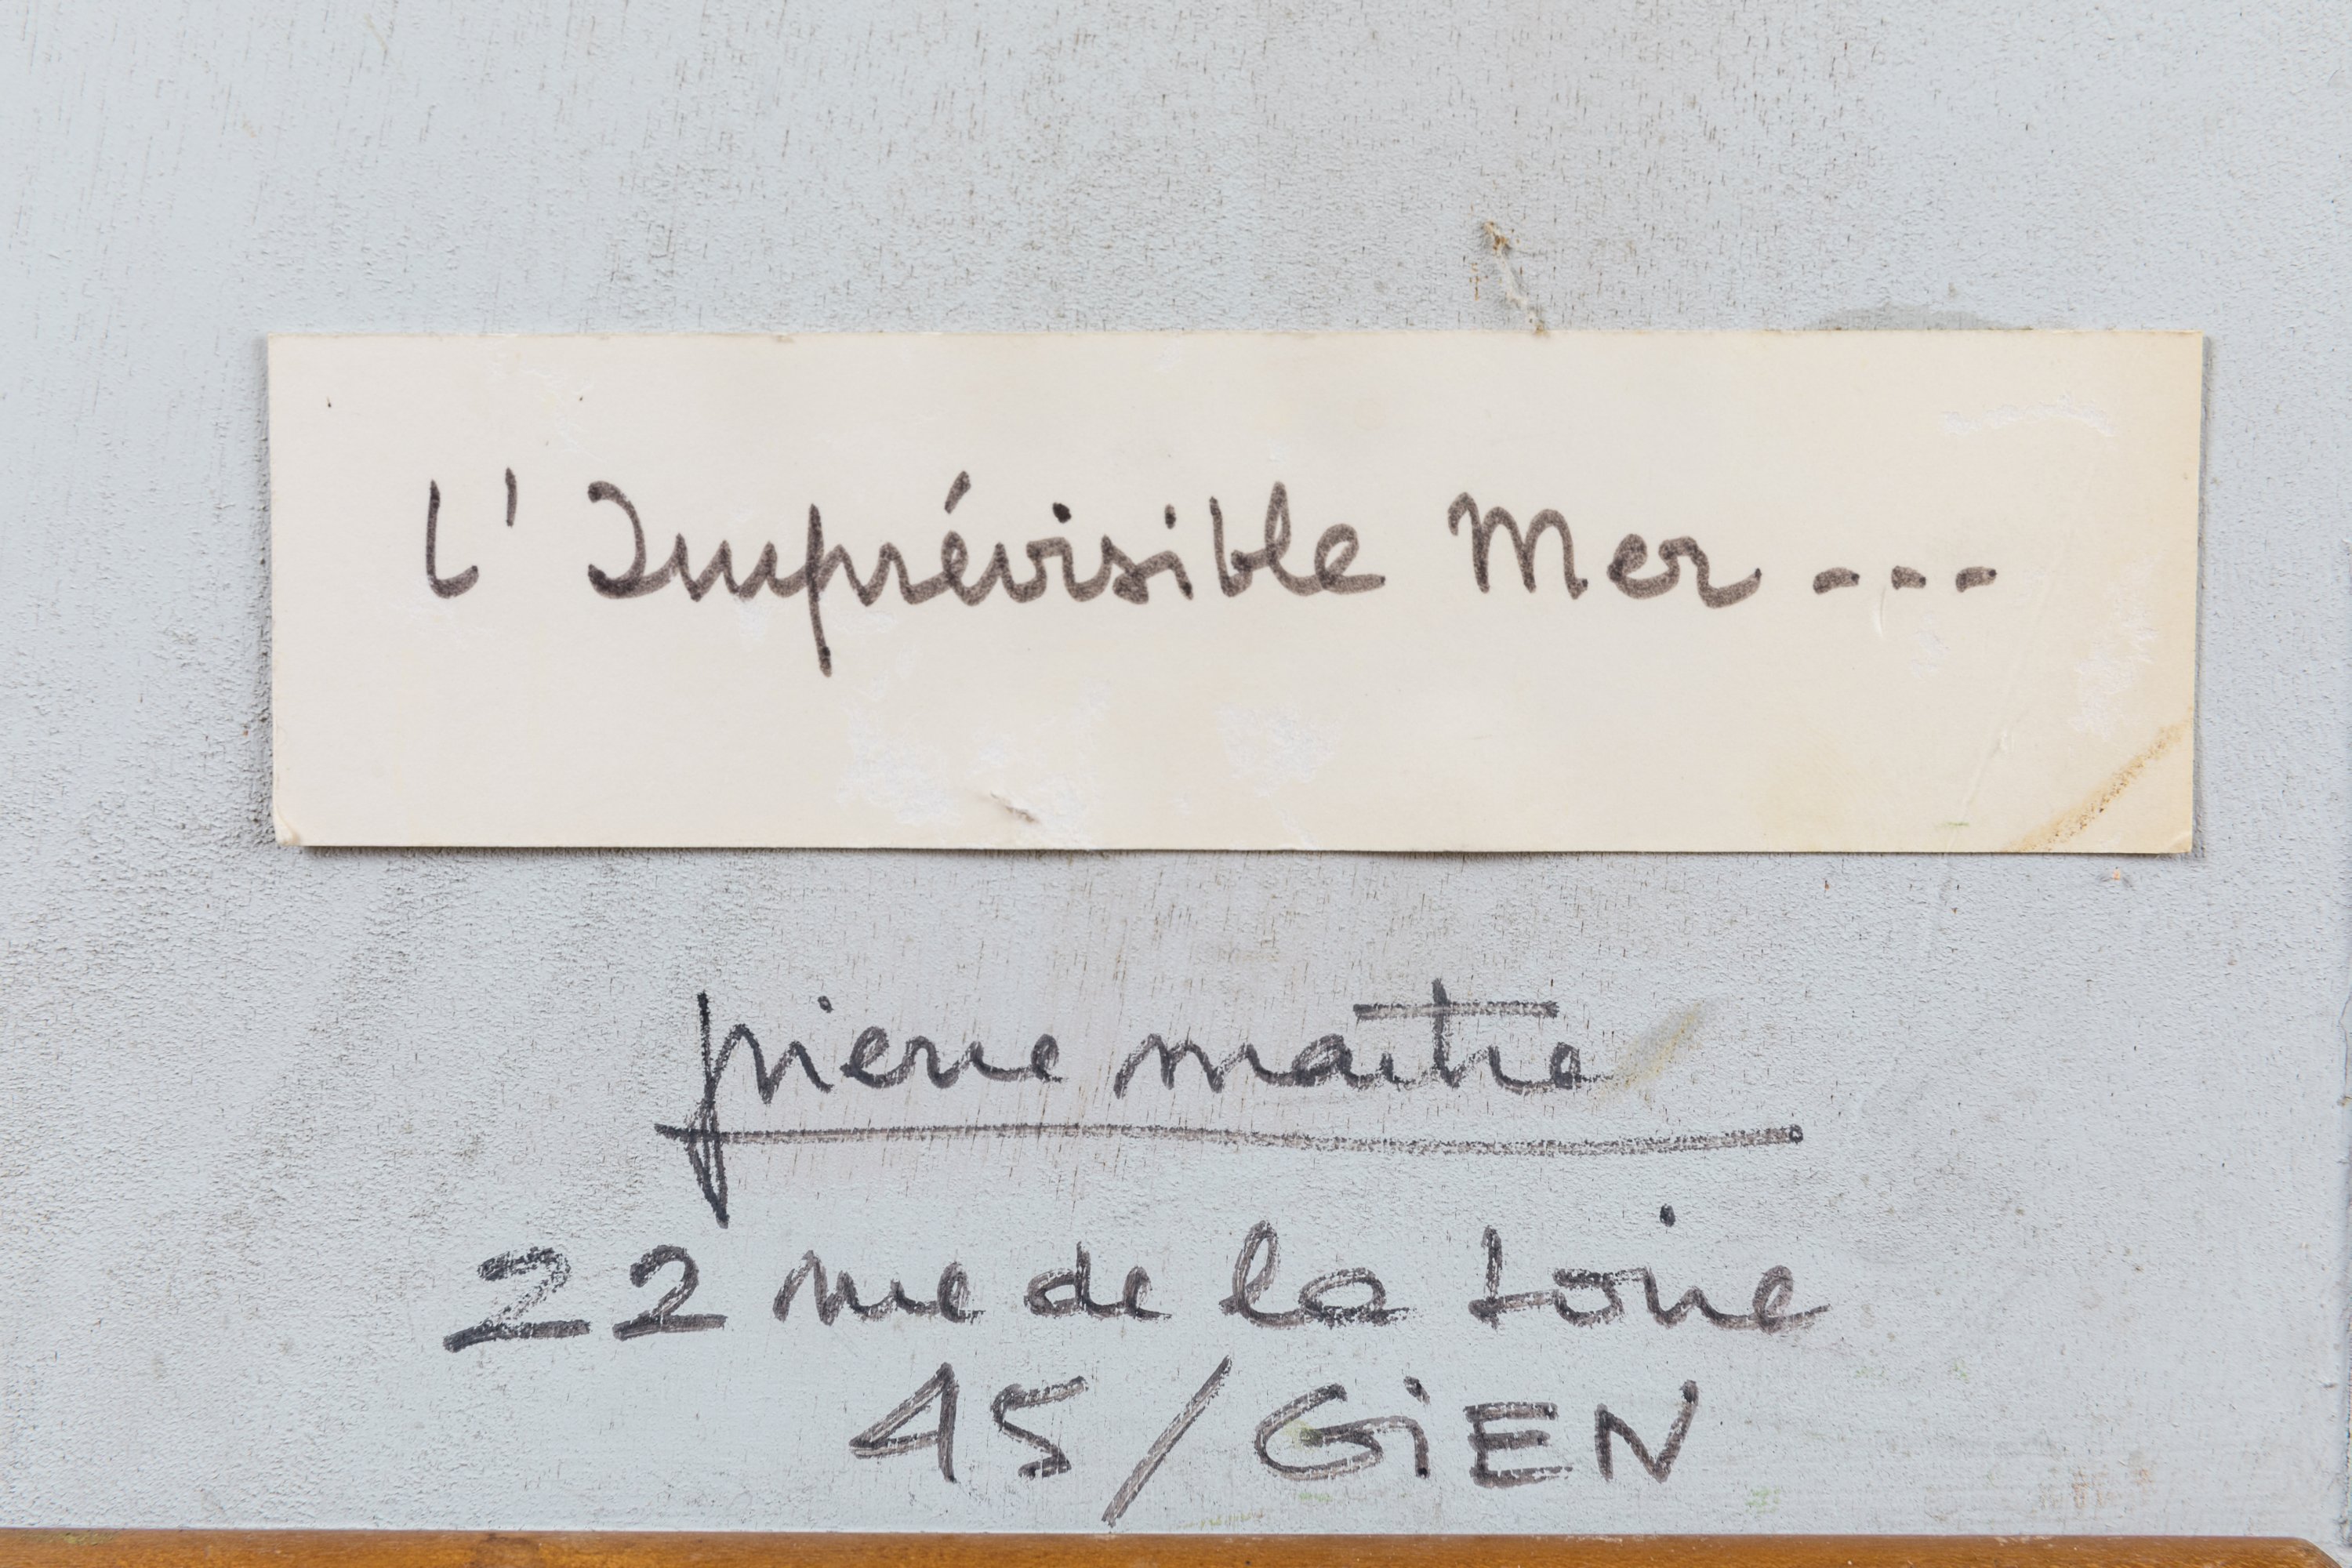 L'Imprévisible Mer ...
pierre maitre
22 rue de la Loire
45/GiEN